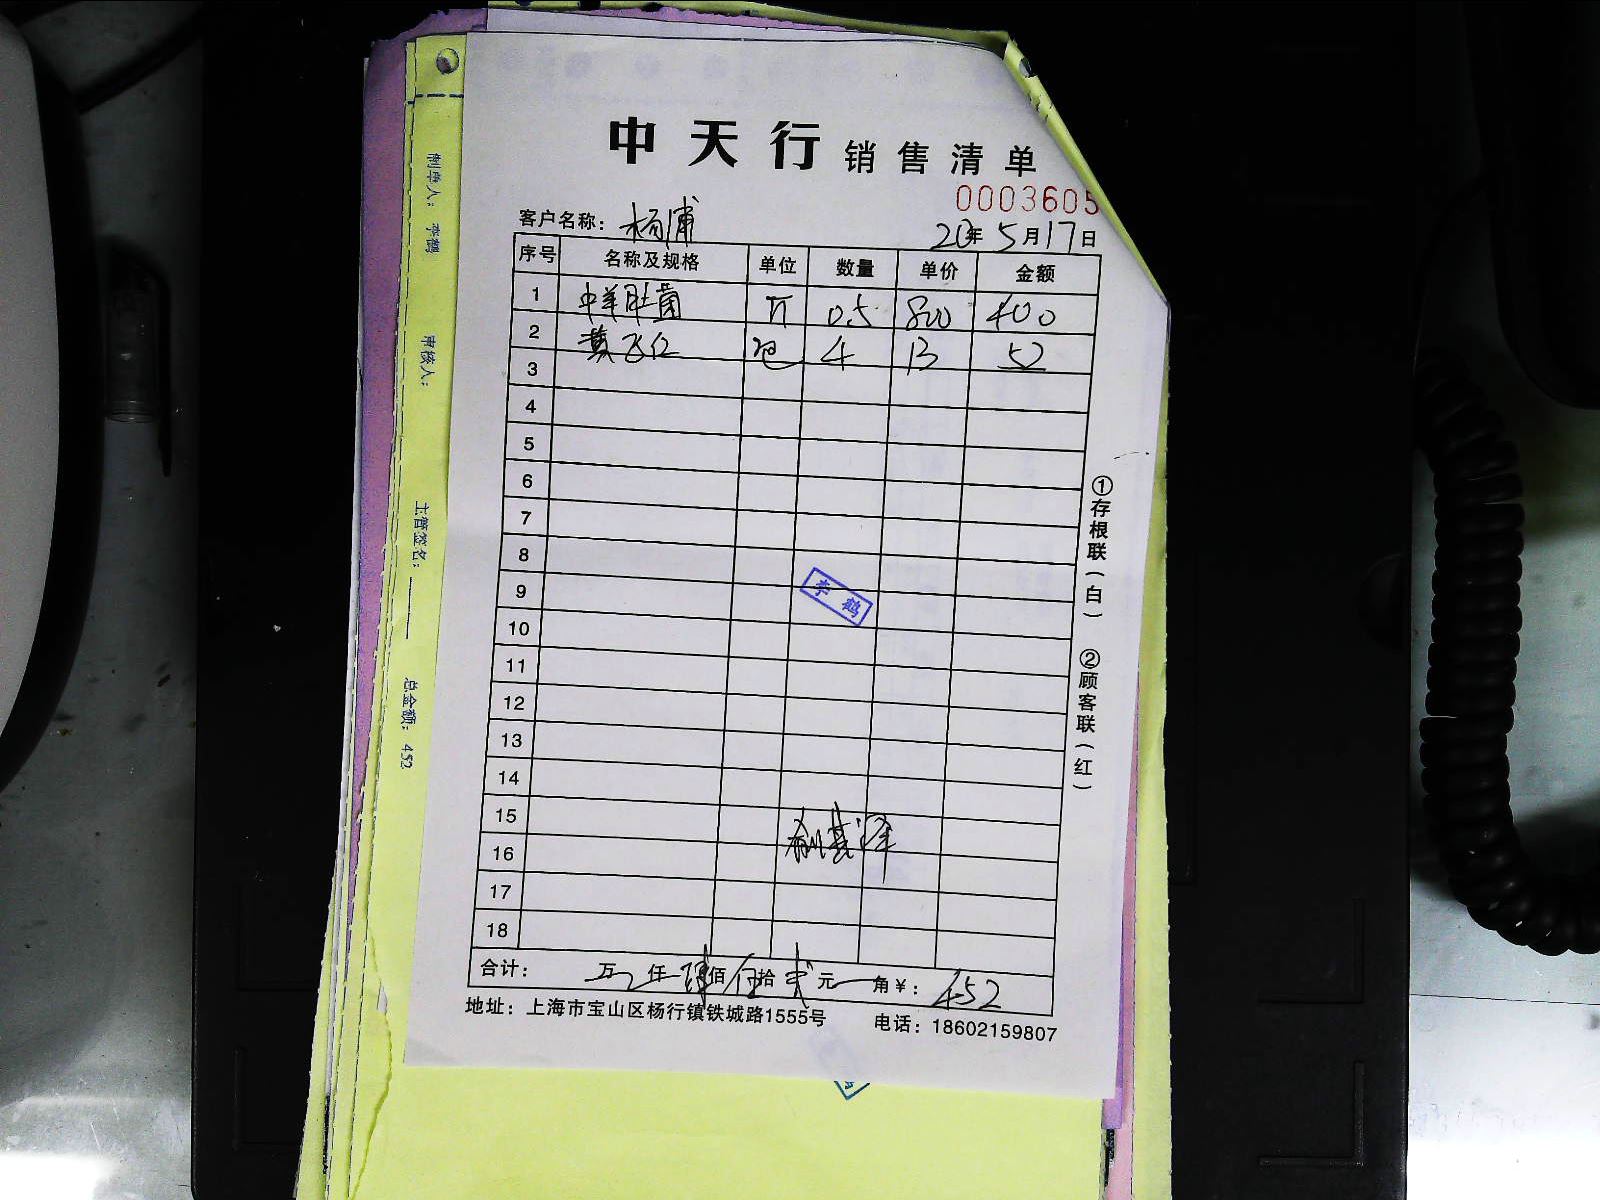 中天行 销售清单
0003605
客户名称: 杨浦
20年 5月17日
序号 名称及规格 单位 数量 单价 金额
1 中羊肚菌 斤 0.5 800 400
2 黄飞红 包 4 13 52
3
4
5
6
7
8
李鹤
9
10
11
12
13
14
15
16
17
18
合计: 万 仟 肆佰伍拾贰元 角¥: 452
地址: 上海市宝山区杨行镇铁城路1555号 电话: 18602159807
①存根联(白) ②顾客联(红)
制单人: 李鹤 审核人: 主管签名: 总金额: 452